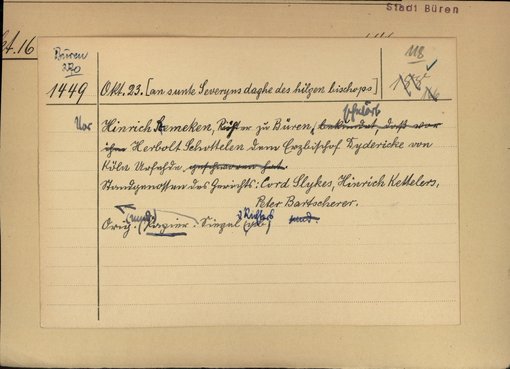 Stadt Büren
16
Büren
270
118
1449 Okt. 23. [an sunte Severyns daghe des hilgen bischops]
schwört
Vor Hinrich Remeken, Richter zu Büren, bekundet, daß vor
ihm Herbolt Schottelen dem Erzbischof Dydericke von
Köln Urfehde geschworen hat.
Standgenossen des Gerichts: Cord Slykes, Hinrich Kettelers,
Peter Bartscherer.
Orig. Papier. Siegel d. Richters